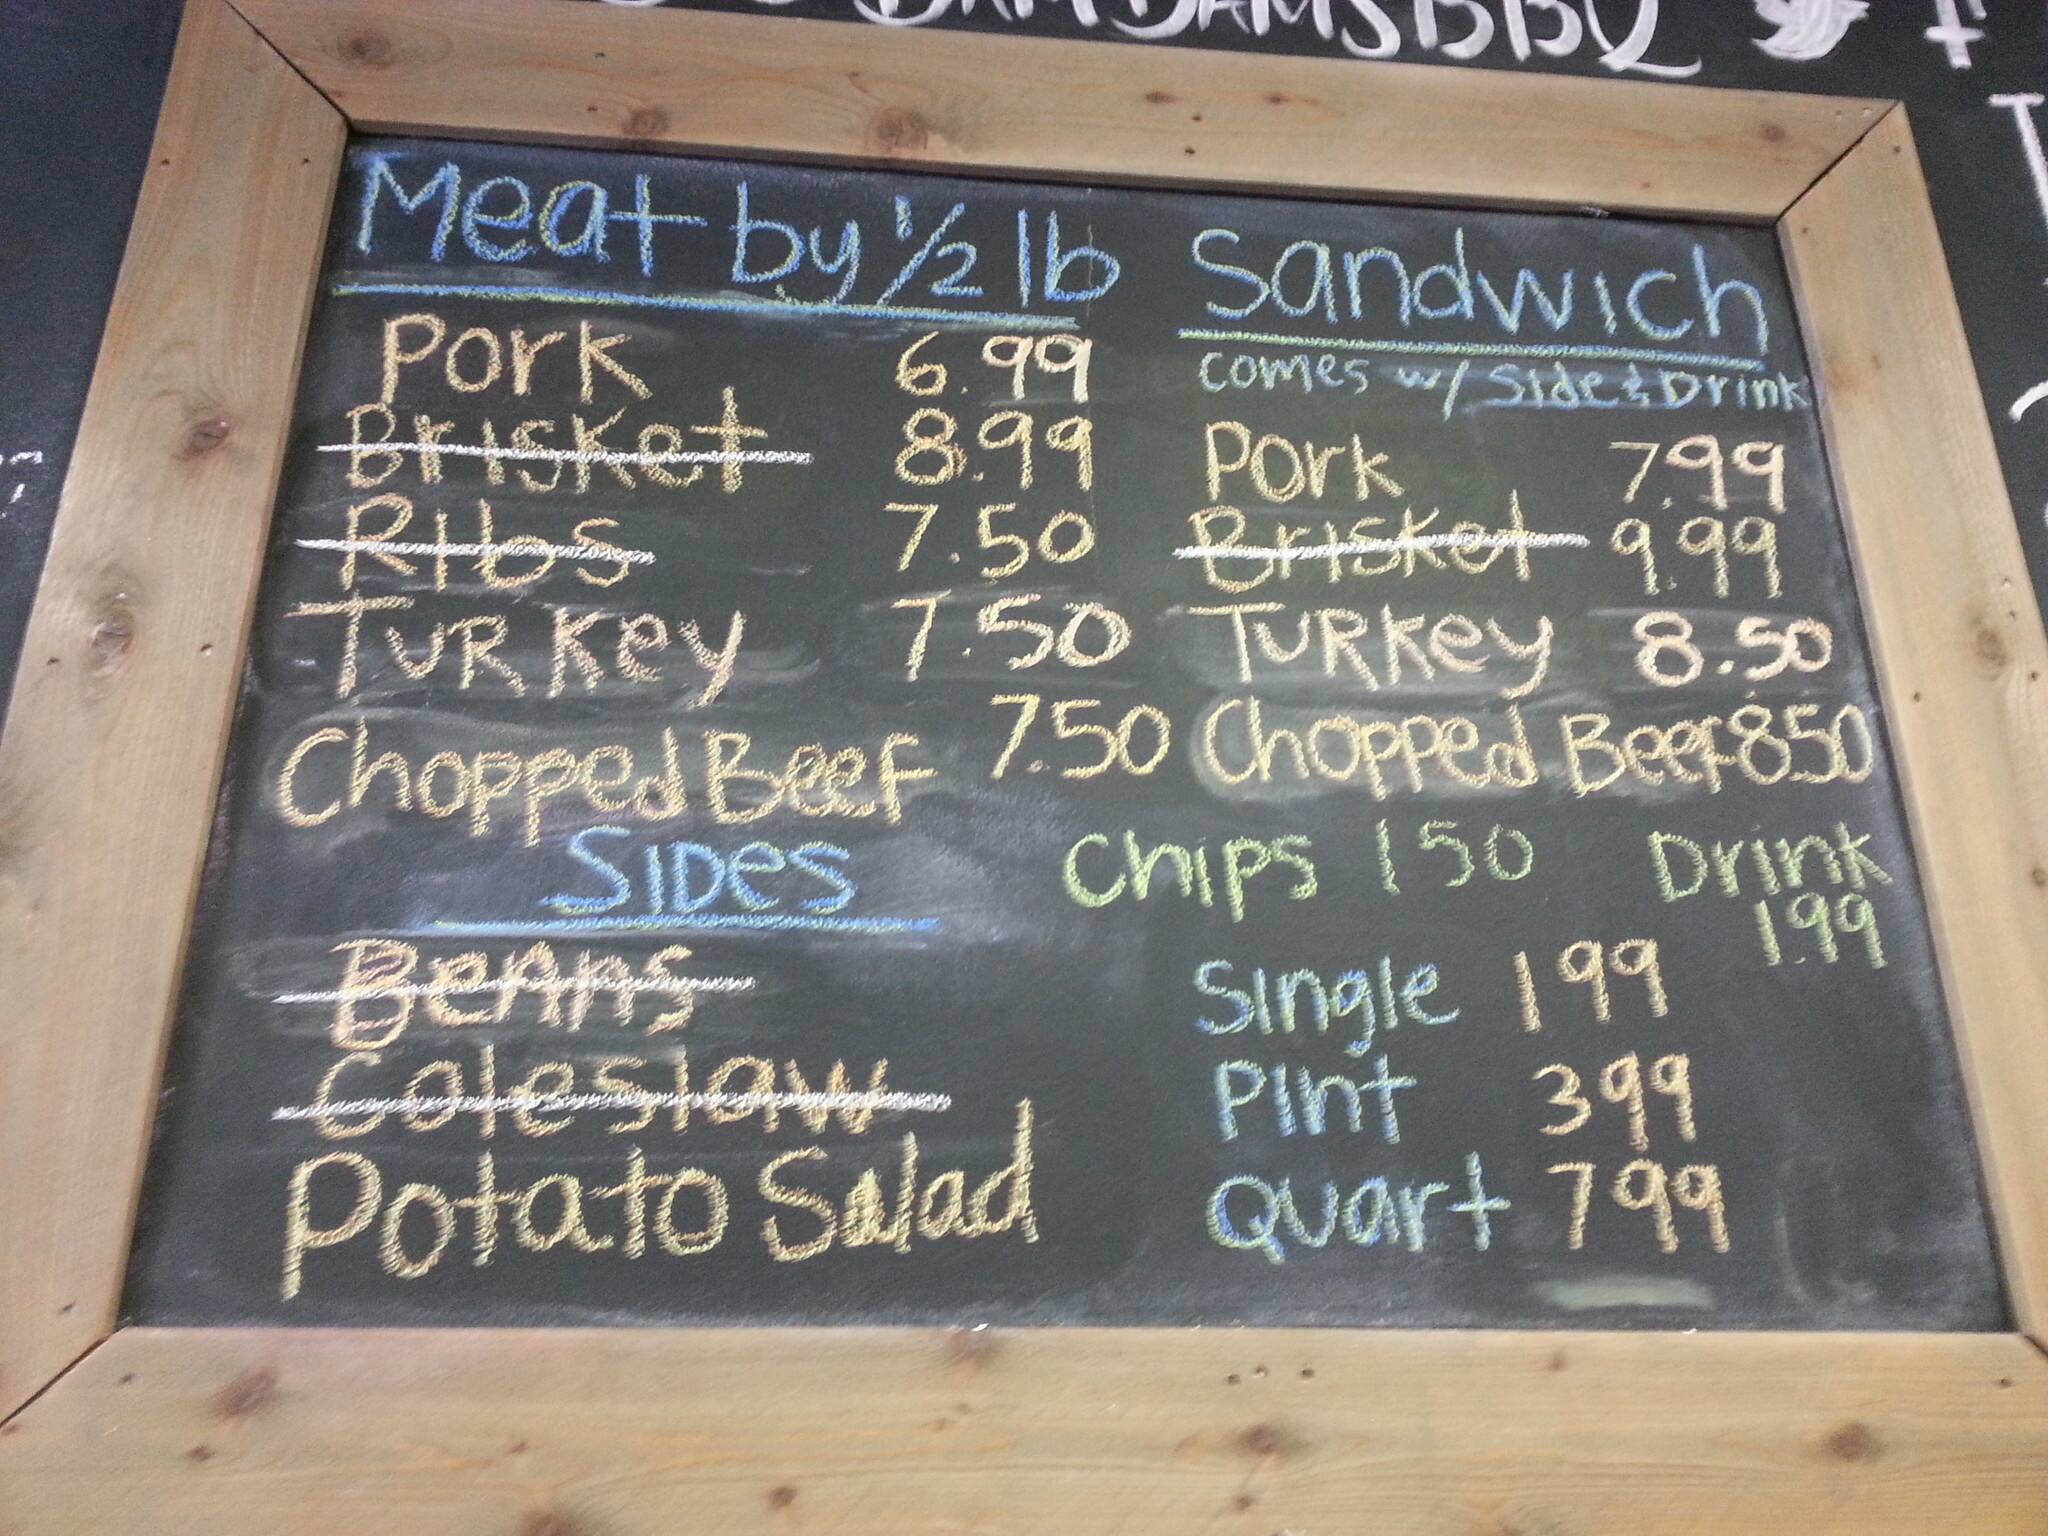 BBQ
Meat by 1/2 lb
Pork 6.99
Brisket 8.99
Ribs 7.50
Turkey 7.50
Chopped Beef 7.50
Sandwich
comes w/ Side & Drink
Pork 7.99
Brisket 9.99
Turkey 8.50
Chopped Beef 8.50
Sides
Beans
Coleslaw
Potato Salad
Chips 1 50
Drink
1.99
Single 1 99
Pint 3 99
Quart 7 99